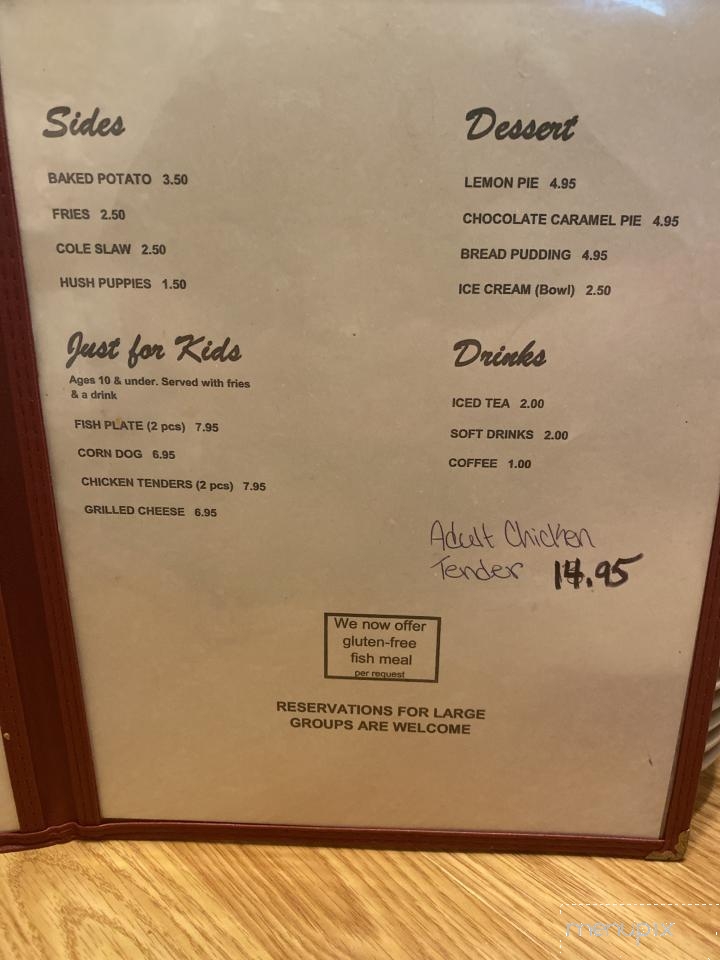 Sides
BAKED POTATO 3.50
FRIES 2.50
COLE SLAW 2.50
HUSH PUPPIES 1.50
Just for Kids
Ages 10 & under. Served with fries
& a drink
FISH PLATE (2 pcs) 7.95
CORN DOG 6.95
CHICKEN TENDERS (2 pcs) 7.95
GRILLED CHEESE 6.95
Dessert
LEMON PIE 4.95
CHOCOLATE CARAMEL PIE 4.95
BREAD PUDDING 4.95
ICE CREAM (Bowl) 2.50
Drinks
ICED TEA 2.00
SOFT DRINKS 2.00
COFFEE 1.00
Adult Chicken
Tender 14.95
We now offer
gluten-free
fish meal
per request
RESERVATIONS FOR LARGE
GROUPS ARE WELCOME
menupix